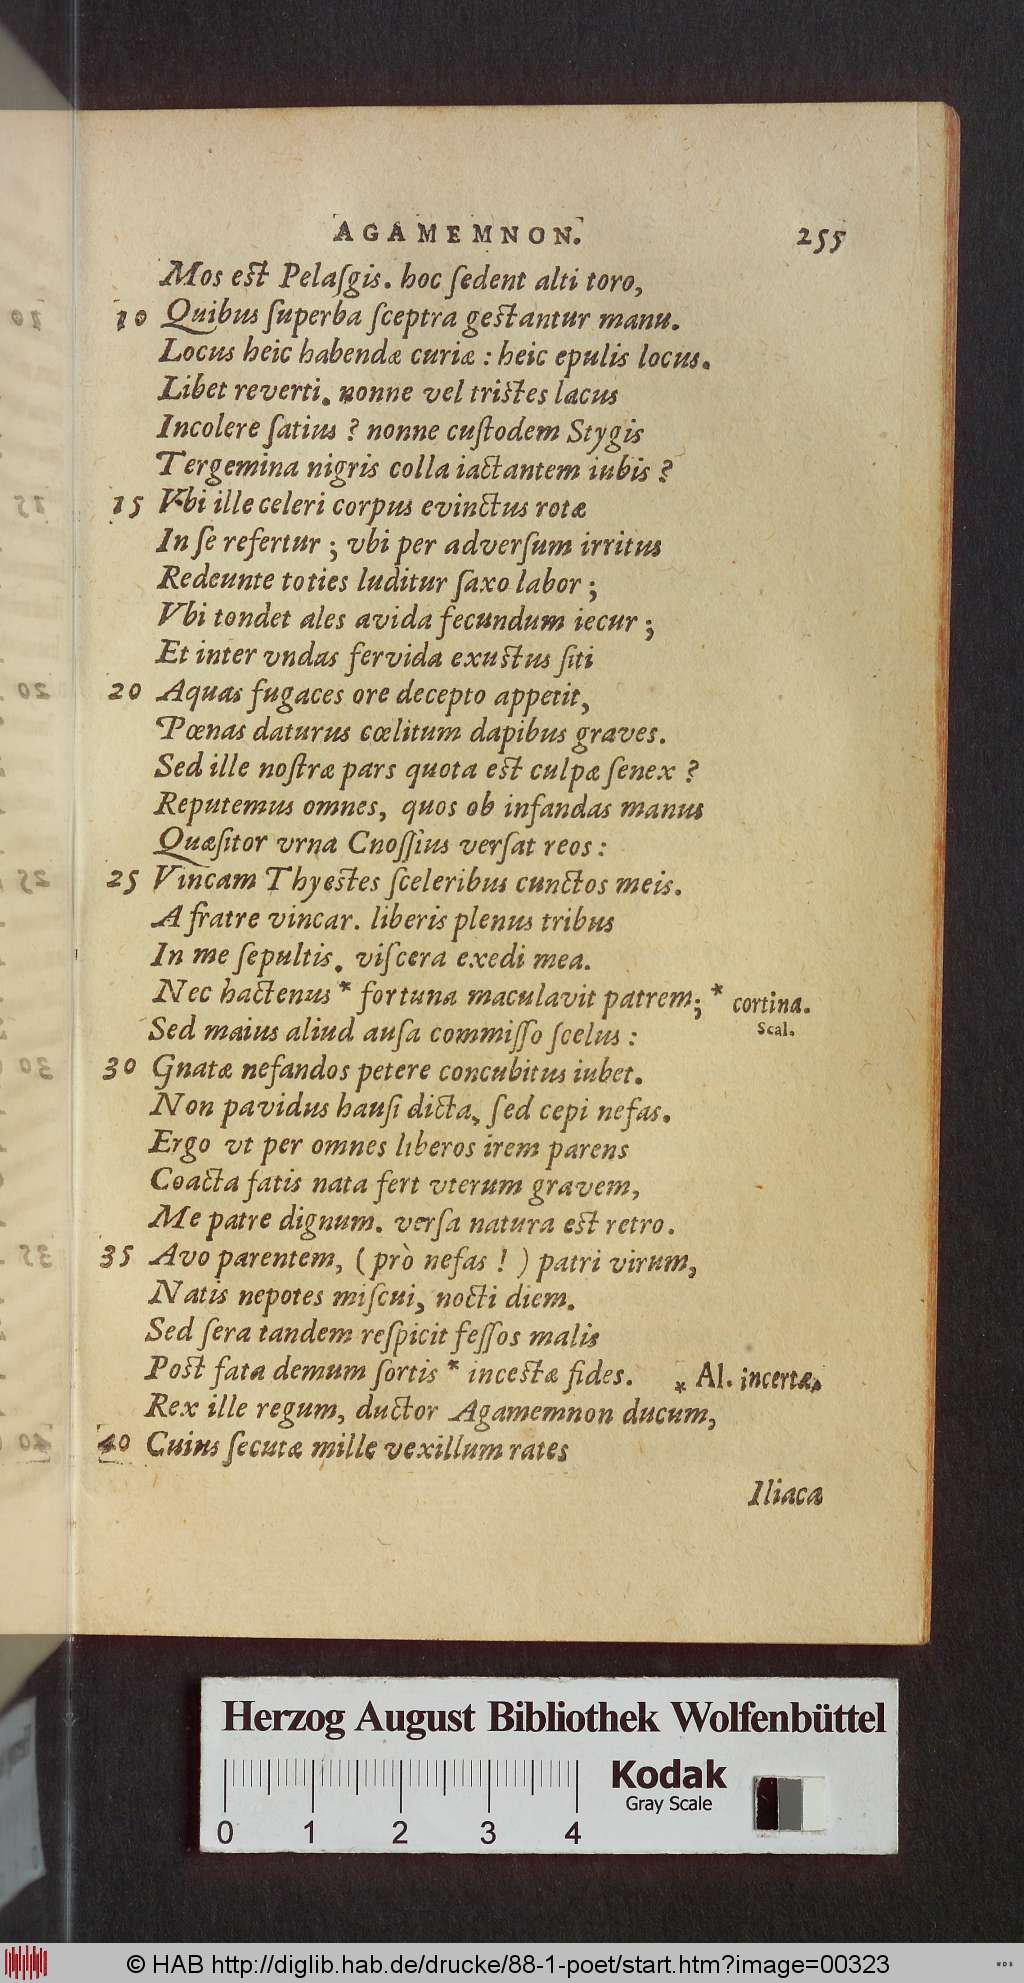 AGAMEMNON. 255
Mos est Pelaſgis. hoc ſedent alti toro,
10 Quibus ſuperba ſceptra gestantur manu.
Locus heic habendæ curiæ : heic epulis locus.
Libet reverti. nonne vel tristes lacus
Incolere ſatius ? nonne cuſtodem Stygis
Tergemina nigris colla iactantem iubis ?
15 Vbi ille celeri corpus evinctus rotæ
In ſe refertur ; vbi per adverſum irritus
Redeunte toties luditur ſaxo labor ;
Vbi tondet ales avida fecundum iecur ;
Et inter vndas fervida exustus ſiti
20 Aquas fugaces ore decepto appetit,
Pœnas daturus cœlitum dapibus graves.
Sed ille noſtræ pars quota est culpæ ſenex ?
Reputemus omnes, quos ob infandas manus
Quæſitor vrna Cnoſſius verſat reos :
25 Vincam Thyestes ſceleribus cunctos meis.
A fratre vincar. liberis plenus tribus
In me ſepultis. viſcera exedi mea.
Nec hactenus * fortuna maculavit patrem; * cortina.
Scal.
Sed maius aliud auſa commiſſo ſcelus :
30 Gnatæ nefandos petere concubitus iubet.
Non pavidus hauſi dicta, ſed cepi nefas.
Ergo vt per omnes liberos irem parens
Coacta fatis nata fert vterum gravem,
Me patre dignum. verſa natura est retro.
35 Avo parentem, ( prò nefas ! ) patri virum,
Natis nepotes miſcui, nocti diem.
Sed ſera tandem reſpicit feſſos malis
Post fata demum ſortis * incestæ fides. * Al. incertæ.
Rex ille regum, ductor Agamemnon ducum,
40 Cuius ſecutæ mille vexillum rates
Iliaca
Herzog August Bibliothek Wolfenbüttel
Kodak
Gray Scale
0 1 2 3 4
© HAB http://diglib.hab.de/drucke/88-1-poet/start.htm?image=00323